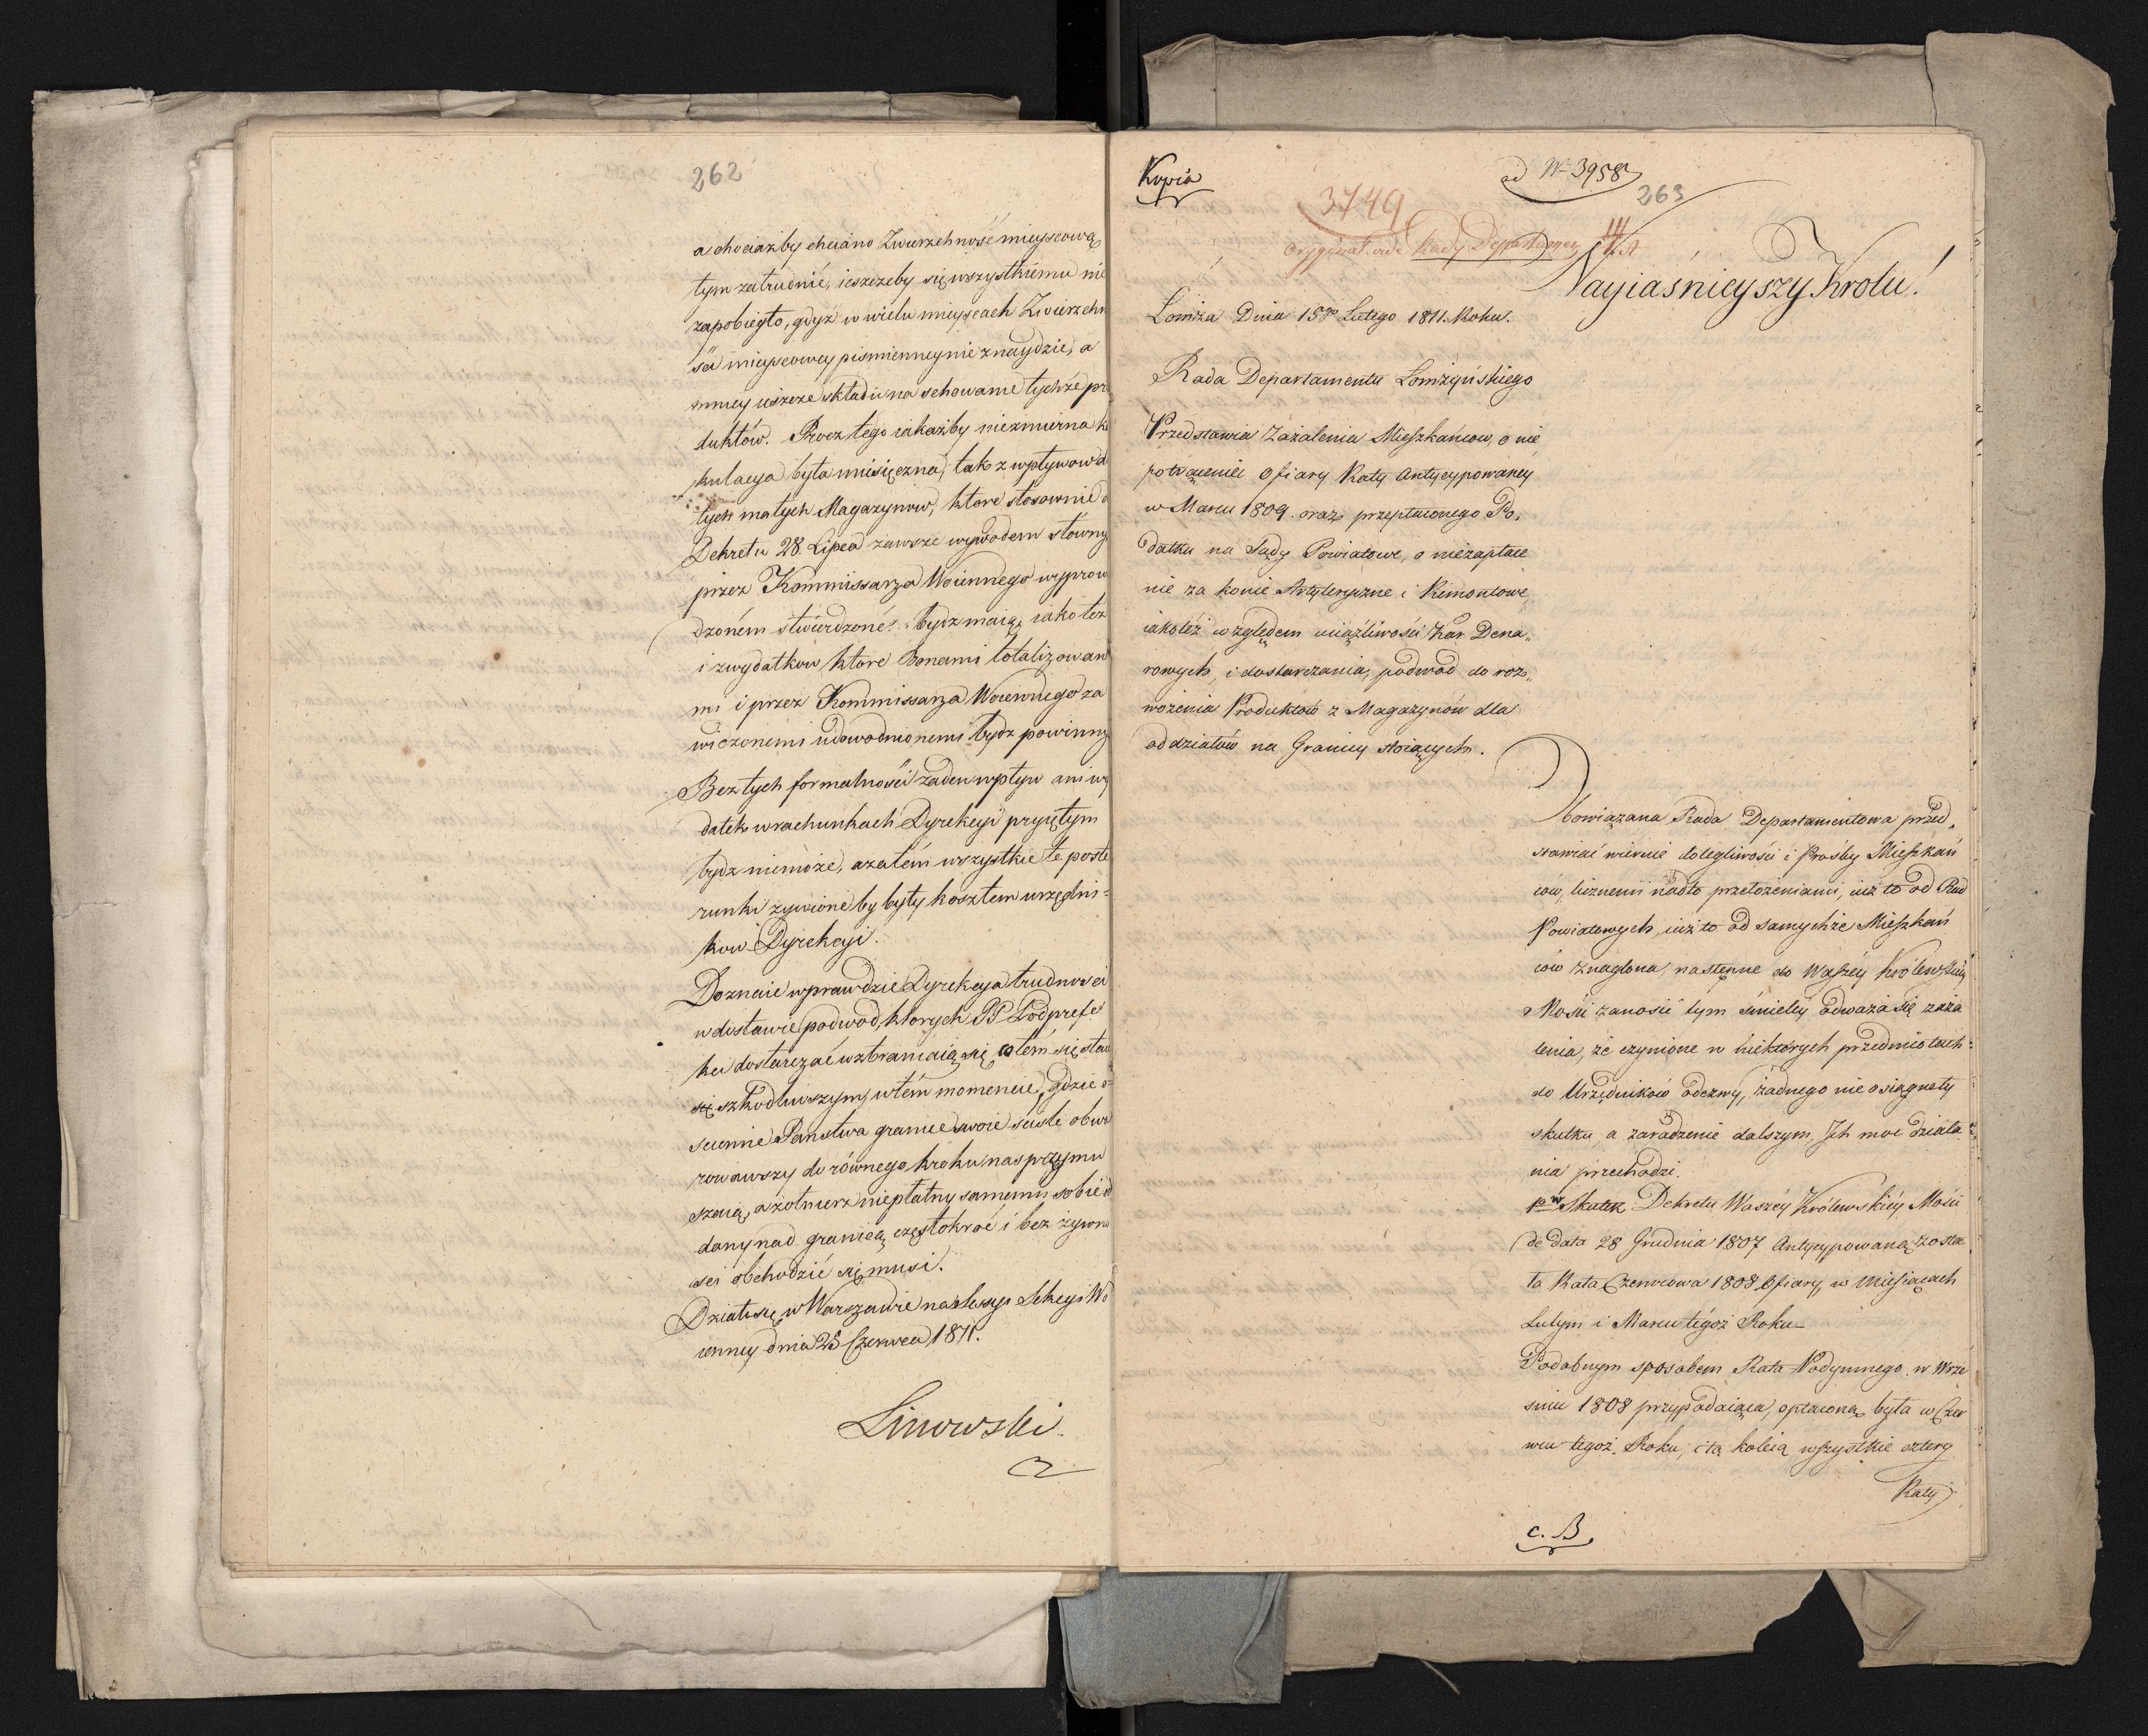 262
a chociażby chciano Zwierzchność mieyscową
tym zatrudnić, ieszczeby się wszystkiemu nie
zapobiegło, gdyż w wielu mieyscach Zwierzchn
mieyscowey pismienney nie znaydzie, a
mniey ieszcze składu na schowanie tychże pro
duktów. Procz tego iakażby niezmierna
kulacya była miesięczna, tak z wpływow
tych małych Magazynow, ktore stosownie
Dekretu 28. Lipca zawsze wywodem słowny
przez Kommissarza Woiennego wyprow
dzoném stwierdzoné bydz maią, iako też
i z wydatkow, ktore Bonami totalizowan
mi i przez Kommissarza Woiennego za
wiczonemi udowodnionemi bydz powinny
Bez tych formalności żaden wpływ ani wy
datek w rachunkach Dyrekcyi pryiętym
bydz niemoże, a zatém wszystkie te poste
runki żywione by były kosztem urzędni=
kow Dyrekcyi.
Doznaie wprawdzie Dyrekcya trudności
w dostawie podwod, ktorych PP Podprefe
kci dostarczać wzbraniaią się, a tém się staie
się szkodliwszym, w tém momencie, gdzie o
scienne Państwa granice swoie ściśle obwa
rowawszy do równego kroku nas przymu
szaią, a żołnierz niepłatny samemu sobie od
dany nad granicą częstokroć i bez żywno
ści obchodzić się musi.
Działo się w Warszawie na Sessyi Sekcyi Wo
ienney dnia 28 Czerwca 1811.
Linowski
Kopia
ad Nro 3958
3749
263
Oryginał vide Rady Departamen
Nayiaśnieyszy Krolu!
Łomża Dnia 15go Lutego 1811. Roku.
Rada Departamentu Łomżyńskiego
Przedstawia Zażalenia Mieszkańcow, o nie
potrącenie Ofiary Raty Antycypowaney
w Marcu 1809. oraz przepłaconego Po„
datku na Sądy Powiatowe, o niezapłace
nie za konie Artyleryczne i Remontowe,
iakoteż względem uciążliwości Kar Dena„
rowych, i dostarczania, podwod do roz„
wożenia Produktów z Magazynów dla
oddziałów na Granicy stoiących.
Obowiązana Rada Departamentowa przed„
stawiać wiernie dolegliwości i Prośby Mieszkań
ców, licznemi nadto przełożeniami, iuż to od Rad
Powiatowych, iuż to od samychże Mieszkań
ców znaglona, następne do Waszéy Królewskiéy
Mości zanosić tym śmieléy odważa się zaża
lenia, że czynione w niektorych przedmiotach
do Urzędników odezwy, żadnego nie osiągnęły
skutku, a zaradzenie dalszym, Ich moc działa
nia przechodzi.
Skutek Dekretu Waszéy Królewskiéy Mości
de data 28 Grudnia 1807 Antycypowaną zosta
ła Rata Czerwcowa 1808 Ofiary, w Miesiącach
Lutym i Marcu tégoż Roku_
Podobnym sposobem Rata Podymnego w Wrze
śniu 1808 przypadaiąca, opłaconą była w Czer
wcu tegoż Roku, i tą koleią wszystkie cztery
Raty
c. B